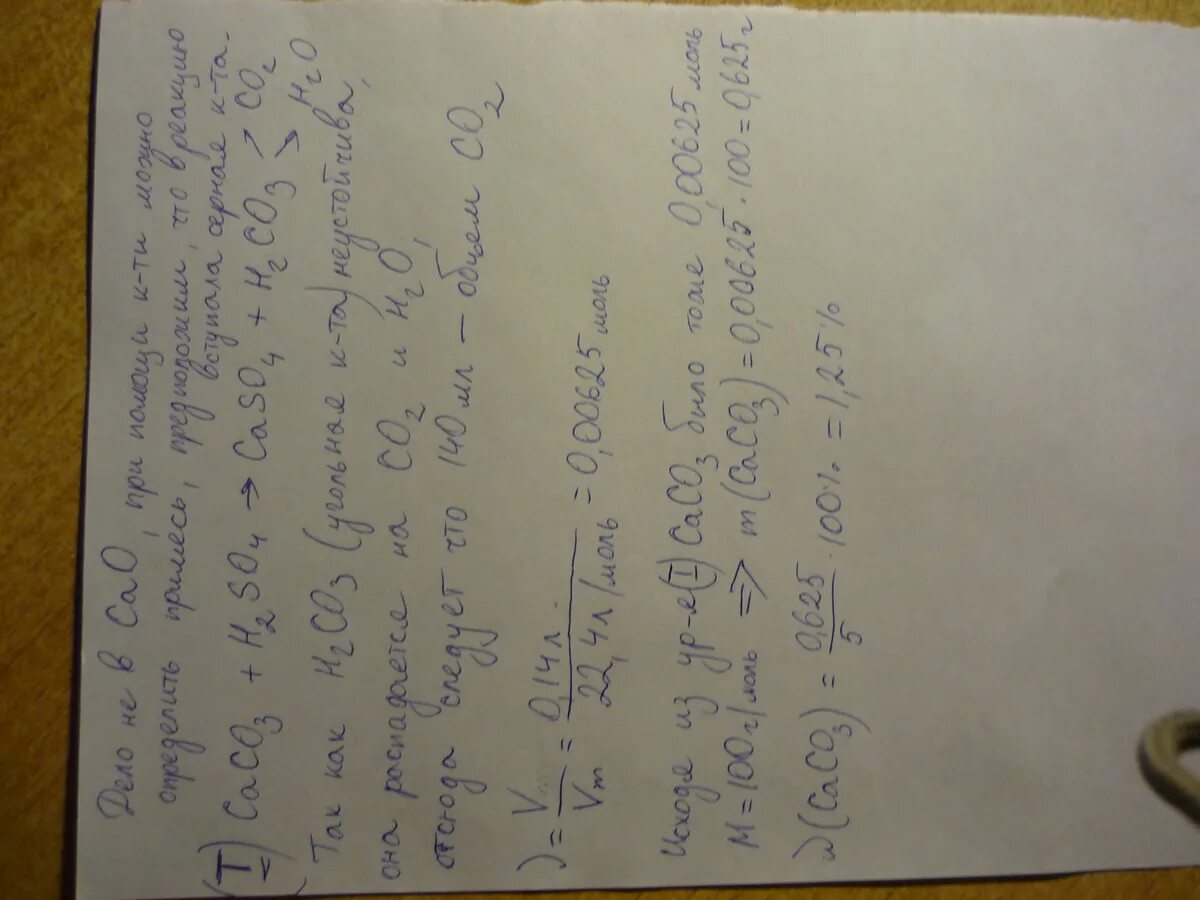 Дело не в CaO, при помощи к-ти можно
определить примесь, предположим, что в реакцию
вступала серная к-та.
(I) CaCO3 + H2SO4 → CaSO4 + H2CO3 ↗ CO2
↘ H2O
Так как H2CO3 (угольная к-та) неустойчива,
она распадается на CO2 и H2O,
отсюда следует что 140 мл – объем CO2
ν = V/Vm = 0,14 л / 22,4 л/моль = 0,00625 моль
Исходя из ур-я (I) CaCO3 было тоже 0,00625 моль
M = 100 г/моль ⇒ m(CaCO3) = 0,00625 · 100 = 0,625 г
ω(CaCO3) = 0,625/5 · 100% = 1,25%